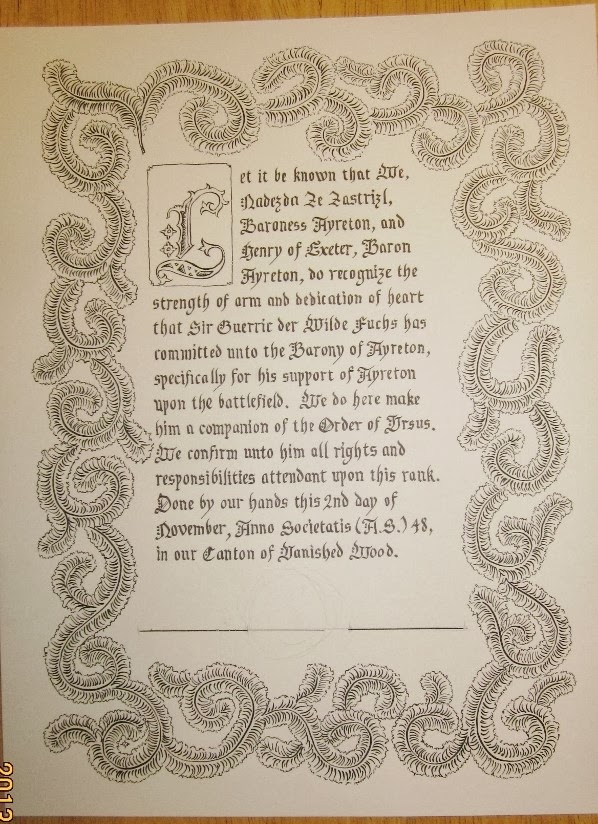 Let it be known that We,
Nadezda Ze Zastrizl,
Baroness Ayreton, and
Henry of Exeter, Baron
Ayreton, do recognize the
strength of arm and dedication of heart
that Sir Guerric der Wilde Fuchs has
committed unto the Barony of Ayreton,
specifically for his support of Ayreton
upon the battlefield. We do here make
him a companion of the Order of Ursus.
We confirm unto him all rights and
responsibilities attendant upon this rank.
Done by our hands this 2nd day of
November, Anno Societatis (A.S.) 48,
in our Canton of Vanished Wood.
2013